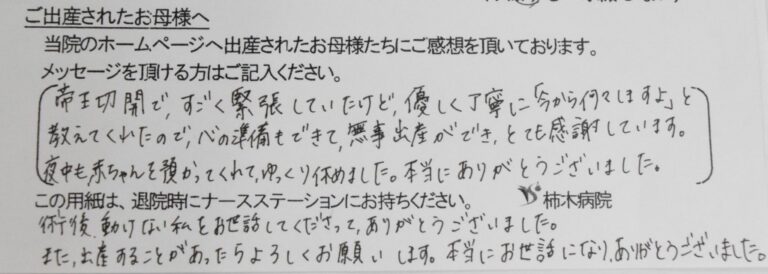 ご出産されたお母様へ
当院のホームページへ出産されたお母様たちにご感想を頂いております。
メッセージを頂ける方はご記入ください。
帝王切開で、すごく緊張していたけど、優しく丁寧に「今から何々しますよ」と
教えてくれたので、心の準備もできて、無事出産ができ、とても感謝しています。
夜中も赤ちゃんを預かってくれて、ゆっくり休めました。本当にありがとうございました。
この用紙は、退院時にナースステーションにお持ちください。 柿木病院
術後、動けない私をお世話してくださって、ありがとうございました。
また、出産することがあったらよろしくお願いします。本当にお世話になり、ありがとうございました。